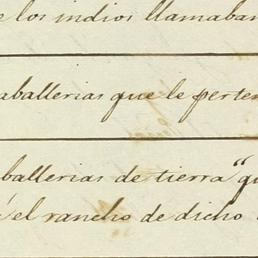 e los indios llamaban
aballerias que le perten
ballerias de tierra" qu
el rancho de dicho